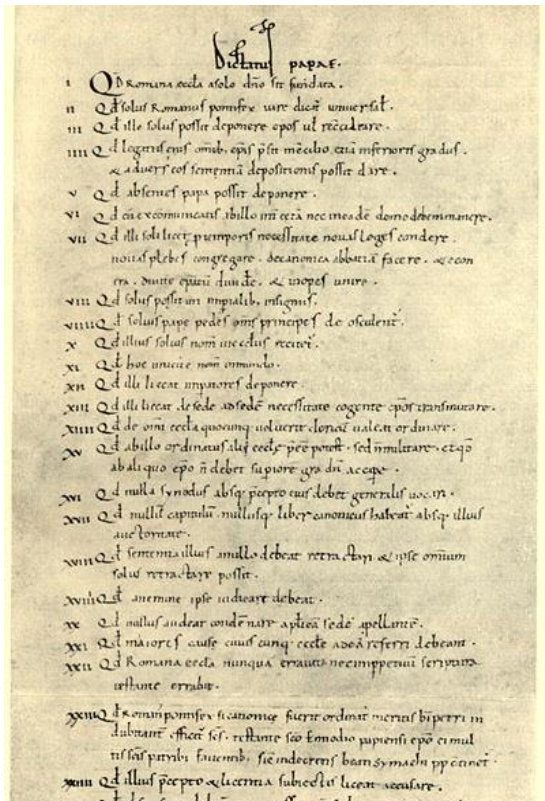 Dictatus papae.
i QD Romana eccła a solo dño sit fundata.
ii Qđ solus Romanus pontifex iure dicat̃ universał.
iii Qđ ille solus possit deponere epõs ut recciliare.
iiii Qđ legatus eius omib; epis p̃sit in cõcilio, etiã inferioris gradus.
& adversus eos sententiã depositionis possit dare.
v Qđ absentes papa possit deponere.
vi Qđ cũ excomunicatis ab illo int̃ cetã nec in eadẽ domo debem̃ manere.
vii Qđ illi soli licet p̃ temporis necessitate novas leges condere.
novas plebes congregare. de canonica abbatiã facere. & econ
tra. divite epatũ divide. & inopes unire.
viii Qđ solus possit uti imp̃ialib; insigniis.
viiii Qđ solius pape pedes oms principes deosculent̃.
x Qđ illius solius nom̃ in ecclis recitet̃.
xi Qđ hoc unicũ est nom̃ in mundo.
xii Qđ illi liceat imp̃atores deponere.
xiii Qđ illi liceat de sede ad sedẽ necessitate cogente epõs transmutare.
xiiii Qđ de omi eccła quocunq; voluerit clericũ valeat ordinare.
xv Qđ ab illo ordinatus alii eccłe p̃ee potest. sed ñ militare. et qđ
ab aliquo epõ ñ debet sup̃iore gradũ accip̃e.
xvi Qđ nulla synodus absq; p̃cepto eius debet generalis vocari.
xvii Qđ nullũ capitulũ. nullusq; liber canonicus habeat̃ absq; illius
auctoritate.
xviii Qđ sententia illius a nullo debeat retractari. & ipse omium
solus retractare possit.
xviiii Qđ a nemine ipse iudicare debeat.
xx Qđ nullus audeat condẽnare aplicã sedẽ apellante.
xxi Qđ maiores cause cuiuscunq; eccłe ad eã referri debeant.
xxii Qđ Romana eccła nunquã erravit. nec in p̃petuũ scriptura
testante errabit.
xxiii Qđ Roman̓ pontifex si canonice fuerit ordinat̓ meritis bi petri in
dubitant̃ effict̃ scs. testante sco Ennodio papiensi epõ ei mul
tis scis patrib; faventib;. sic̃ in decretis beati symachi pp̃ cõtinet̃.
xxiiii Qđ illius p̃cepto & licentia subiectis liceat accusare.